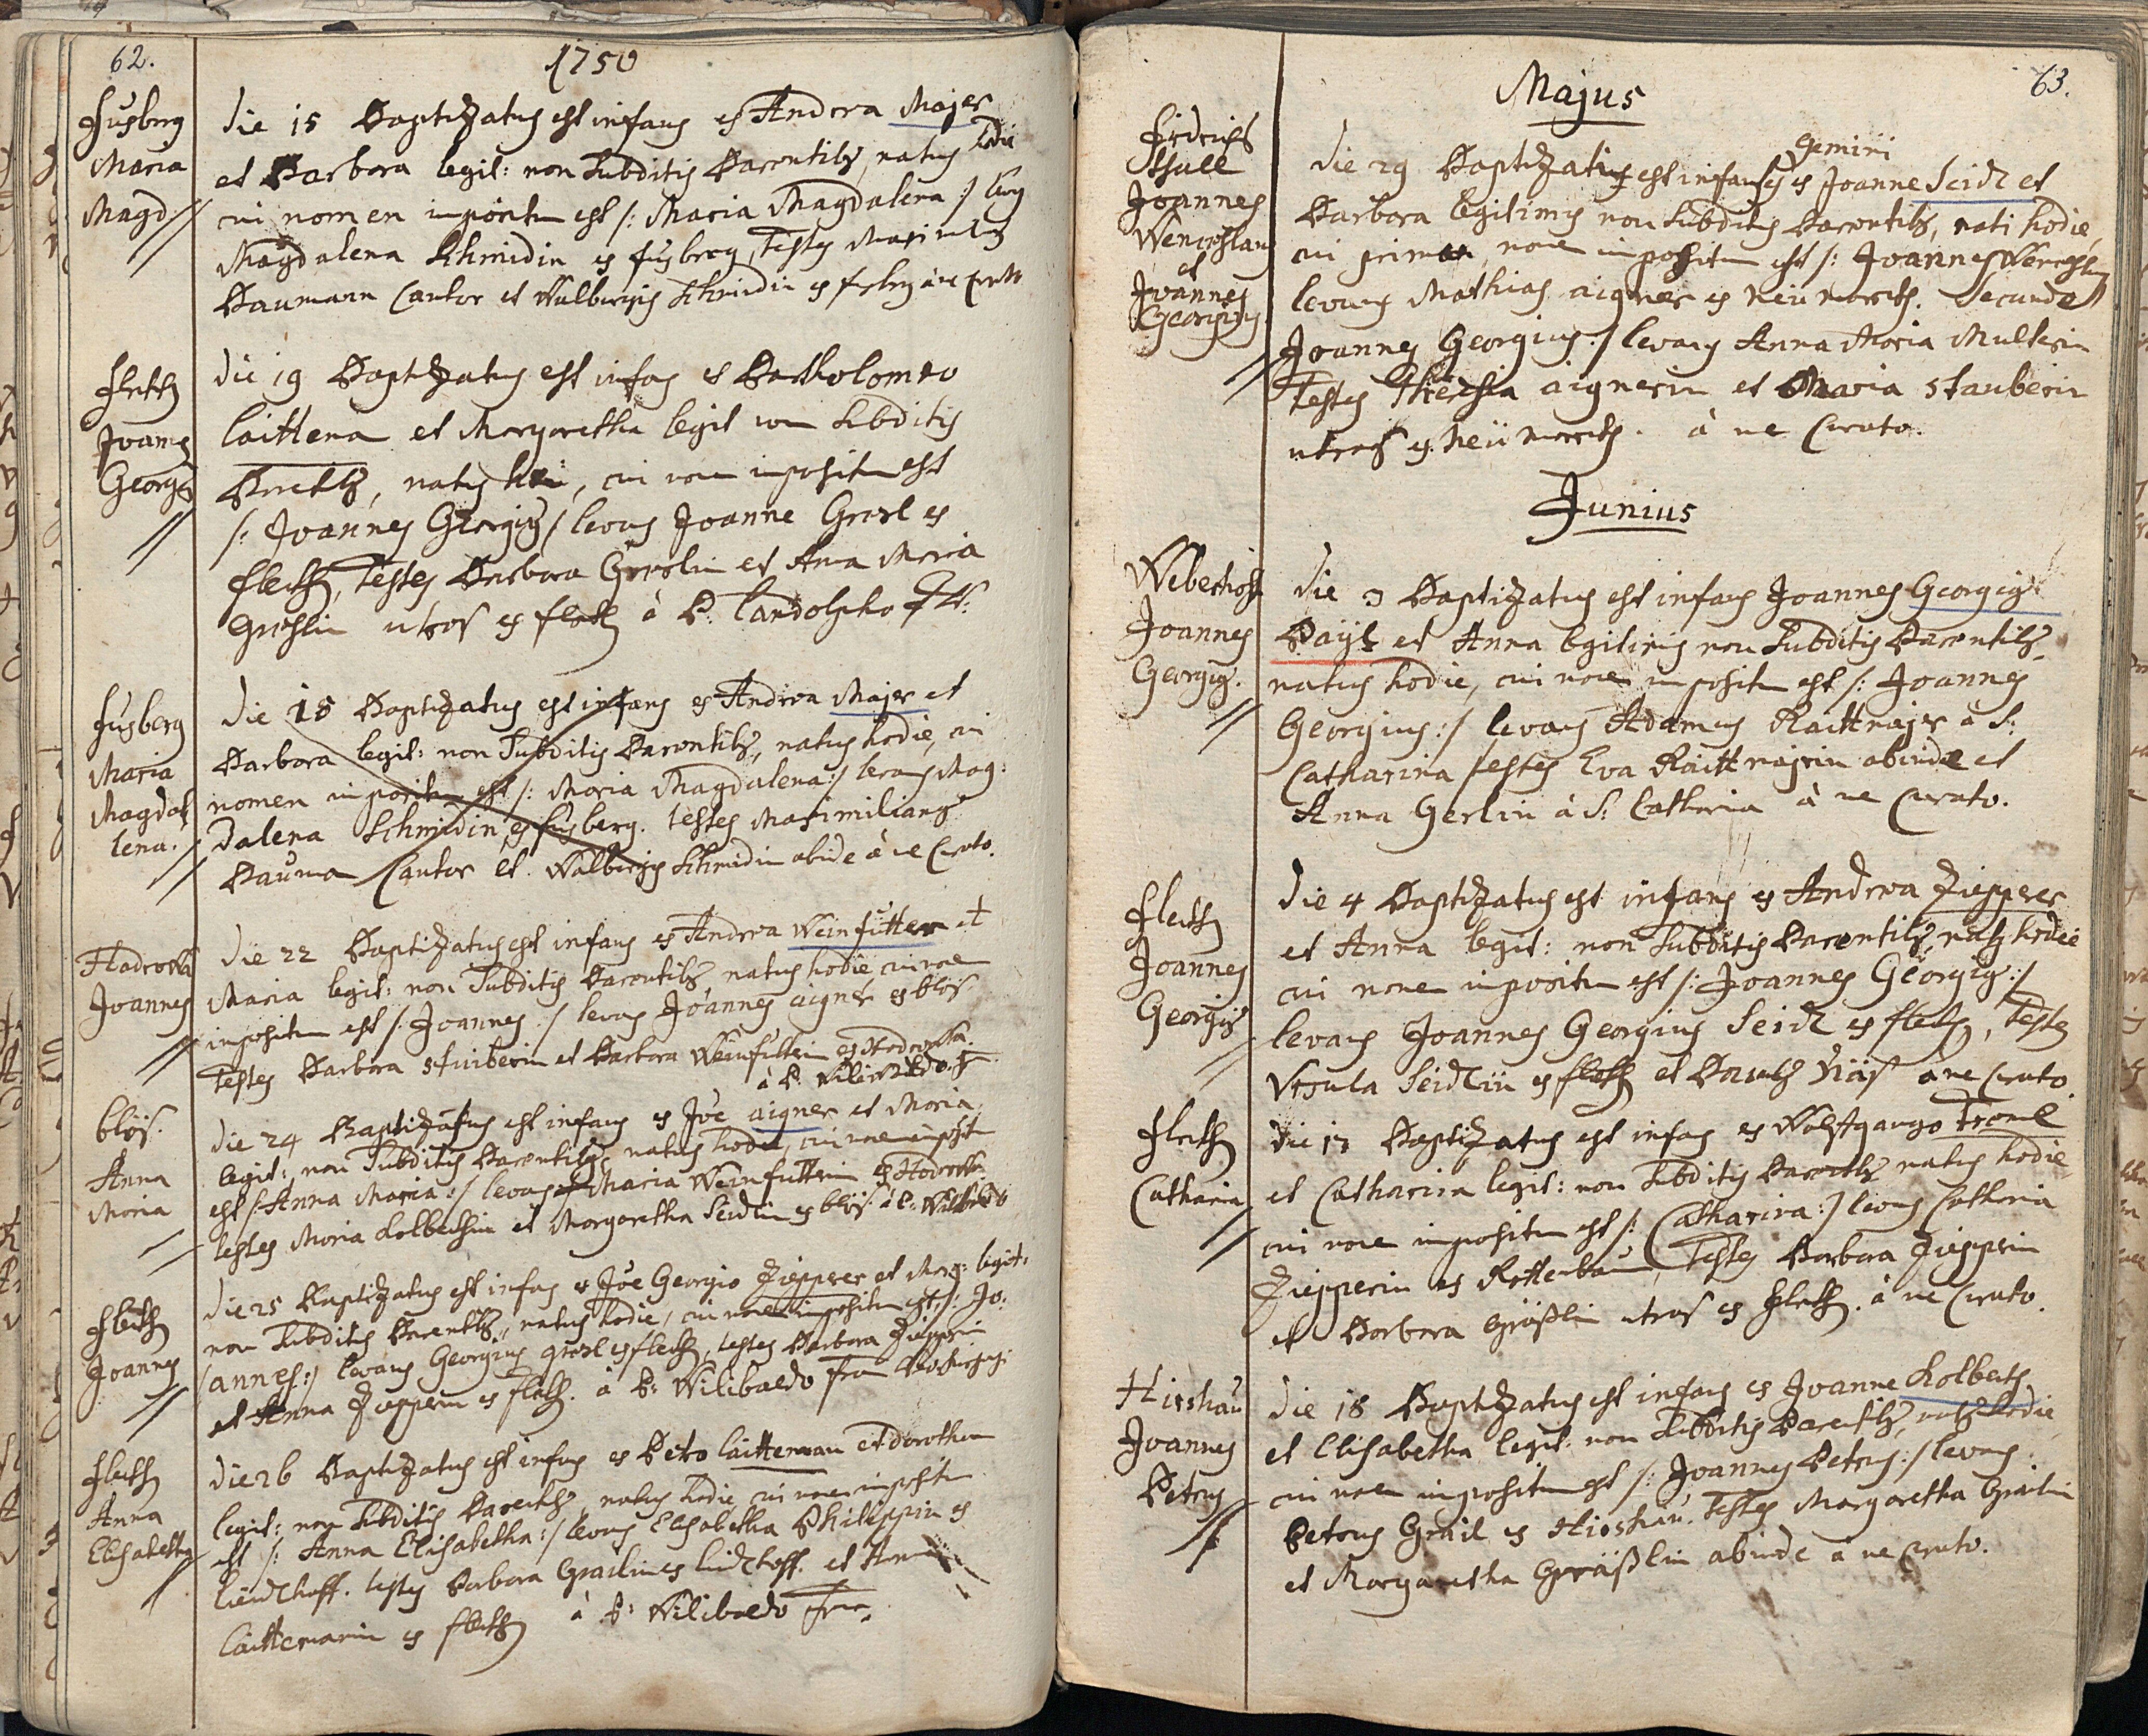 62.
1750
Fusberg
Maria
Magd.
Die 18 Baptizatus est infans ex Andrea Majer
et Barbara legit: non Subditis Parentibus, natus hodie
cui nomen impositum est /: Maria Magdalena :/ levans
Magdalena Schmidin ex Fusberg, Testes
Baumann Cantor et Walburgis Schmidin ex à me Curato
Fletth
Joannes
Georgius
Die 19 Baptizatus est infans ex Bartholomeo
Laittena et Margaretha legit non Subditis
natus heri, cui nomen impositum est
/: Joannes Georgius :/ levans Joanne Grosl ex
Fletth, Testes Barbara Groslin et Anna Maria
Groslin ex Fletth à P. Landolpho
Fusberg
Maria
Magda
lena.
Die 18 Baptizatus est infans ex Andrea Majer et
Barbara legit: non Subditis Parentibus, natus hodie, cui
nomen impositum est /: Maria Magdalena :/ levans Mag:
dalena Schmidin ex Fusberg. testes Maximilianus
Bauman Cantor et Walburgis Schmidin abinde à me Curato.
Joannes
Die 22 Baptizatus est infans ex Andrea Weinfütter et
Maria legit: non Subditis Parentibus, natus hodie, cui nomen
impositum est /: Joannes :/ levans Joannes aigner ex blös
Testes Barbara et Barbara Weinfüttrin ex
à P. Wilibaldo
blös.
Anna
Maria
Die 24 Baptizatus est infans ex Joe aigner et Maria
legit: non Subditis Parentibus, natus hodie, cui nomen impositum
est /: Anna Maria :/ levans Maria Weinfuttrin ex
testes Maria Kolbethin et Margaretha Seidlin ex blös à P. Wilibaldo
Fletth
Joannes
Die 25 Baptizatus est infans ex Joe Georgio Ziepperer et Marg: legit:
non Subditis Parentibus, natus hodie, cui nomen impositum est /: Jo:
annes :/ levans Georgius Grosl ex Fletth, testes Barbara Ziepprin
et Anna Zieppprin ex Fletth. à P: Wilibaldo
Fletth
Anna
Elisabetha
Die 26 Baptizatus est infans ex Petro Laitteman et dorothea
legit: non Subditis Parentibus, natus hodie, cui nomen impositum
est /: Anna Elisabetha :/ levans Elisabetha Philippin ex
testes Barbara Grailin ex et Anna
Laittemanin ex Fletth à P: Wilibaldo
63.
Majus
Joannes
Wenceslaus
et
Joannes
Georgius
gemini
Die 29 Baptizatus est infans ex Joanne Seidl et
Barbara legitimis non Subditis Parentibus, nati hodie,
cui primo nomen impositum est /: Joannes Wenceslaus
levans Mathias aigner ex Neümarck. Secundo
Joannes Georgius :/ levans Anna Maria Multerin
Testes Theresia aignerin et Maria Stauberin
ex Neümarck. à me Curato.
Junius
Joannes
Georgius.
Die 3 Baptizatus est infans Joannes Georgius
Bayl et Anna legitimis non Subditis Parentibus,
natus hodie, cui nomen impositum est /: Joannes
Georgius :/ levans Adamus Raittmajer à S:
Catharina testes Eva Raittmajrin abinde et
Anna Gerlin à S: Catharina à me Curato.
Fletth
Joannes
Georgius
Die 4 Baptizatus est infans ex Andrea Ziepperer
et Anna legit: non Subditis Parentibus, natus hodie
cui nomen impositum est /: Joannes Georgius :/
levans Joannes Georgius Seidl ex Fletth, Testes
Ursula Seidlin ex Fletth et à me Curato.
Fletth
Catharina
Die 17 Baptizatus est infans ex Wolffgango Troml
et Catharina legit: non Subditis Parentibus natus hodie
cui nomen impositum est /: Catharina :/ levans Catharina
Ziepperin ex Rottenbaum, Testes Barbara Zieperin
et Barbara Größlin ex Fletth. à me Curato.
Hirshau
Joannes
Petrus
Die 18 Baptizatus est infans ex Joanne Kolbeth
et Elisabetha legit: non Subditis Parentibus, natus hodie
cui nomen impositum est /: Joannes Petrus :/ levans
Petrus Grail ex Hirshau. Testes Margaretha Grailin
et Margaretha Größlin abinde à me Curato.